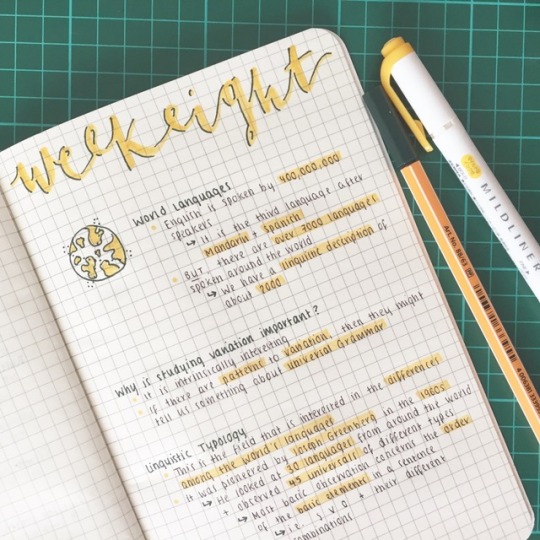 week eight
World Languages
English is spoken by 400,000,000
speakers
↳ It is the third language after
Mandarin + Spanish
BUT, there are over 7000 languages
spoken around the world
↳ We have a linguistic description of
about 2000
Why is studying variation important?
it is intrinsically interesting
If there are patterns to variation, then they might
tell us something about universal Grammar
Linguistic Typology
This is the field that is interested in the differences
among the world's languages
it was pioneered by Joseph Greenberg in the 1960s
↳ He looked at 30 languages from around the world
+ observed 45 universals of different types
↳ Most basic observation concerns the order
of the basic elements in a sentence
↳ i.e. S, V, O + their different
combinations
MILDLINER
Art.No. 88/63